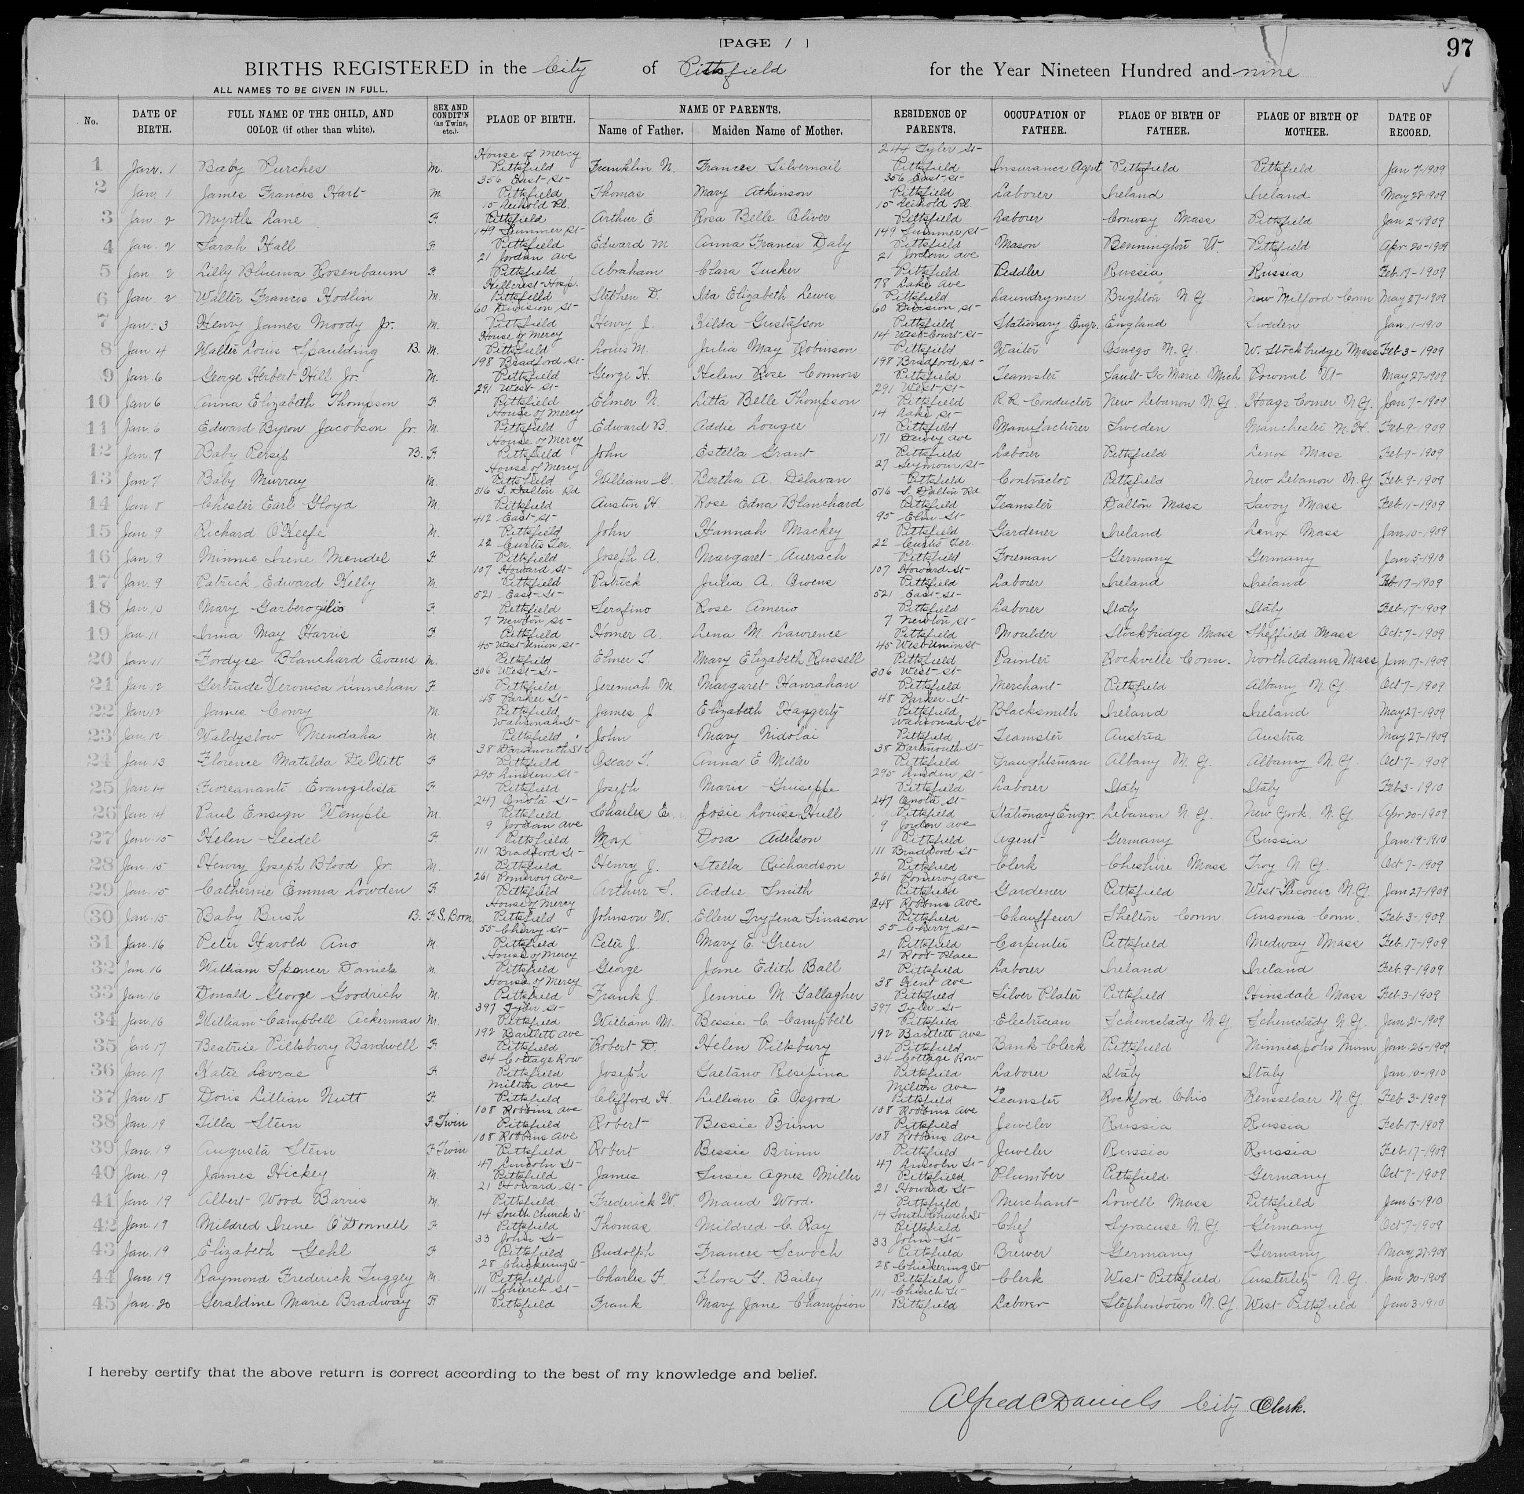 [PAGE 1]
97
BIRTHS REGISTERED in the City of Pittsfield for the Year Nineteen Hundred and nine
ALL NAMES TO BE GIVEN IN FULL.
No. DATE OF BIRTH. FULL NAME OF THE CHILD, AND COLOR (if other than white). SEX AND CONDIT'N (as Twins, etc.). PLACE OF BIRTH. NAME OF PARENTS. Name of Father. Maiden Name of Mother. RESIDENCE OF PARENTS. OCCUPATION OF FATHER. PLACE OF BIRTH OF FATHER. PLACE OF BIRTH OF MOTHER. DATE OF RECORD.
1 Jan. 1 Baby Purches M. House of Mercy Pittsfield Franklin N. Frances Silvernail 244 Tyler St Pittsfield Insurance Agent Pittsfield Pittsfield Jan 7-1909
2 Jan. 1 James Francis Hart M 356 East St Pittsfield Thomas Mary Atkinson 356 East St Pittsfield Laborer Ireland Ireland May 28-1909
3 Jan 2 Myrtle Lane F 15 Pl. Pittsfield Arthur E Rosa Belle Oliver 15 Pl Pittsfield Laborer Conway Mass Pittsfield Jan 2-1909
4 Jan. 2 Sarah Hall F 149 Summer St Pittsfield Edward M Anna Frances Daly 149 Summer St Pittsfield Mason Bennington Vt Pittsfield Apr 20-1909
5 Jan 2 Lilly Bluema Rosenbaum F 21 Jordan Ave Pittsfield Abraham Clara Tucker 21 Jordan Ave Pittsfield Peddler Russia Russia Feb 17-1909
6 Jan. 2 Walter Francis Hodlin M. Hillcrest Hosp. Pittsfield Stephen D. Ida Elizabeth Lewis 78 Lake Ave Pittsfield Laundrymen Brighton N Y New Milford Conn May 27-1909
7 Jan. 3 Henry James Moody Jr. M. 60 Division St Pittsfield Henry J. Hilda Gustafson 60 Division St Pittsfield Stationary Engr. England Sweden Jan. 1-1910
8 Jan. 4 Walter Louis Spaulding B. M. House of Mercy Pittsfield Louis M. Julia May Robinson 14 West Court St Pittsfield Waiter Oswego N Y W. Stockbridge Mass Feb 3-1909
9 Jan. 6 George Herbert Hill Jr. M. 198 Bradford St Pittsfield George H. Helen Rose Connors 198 Bradford St Pittsfield Teamster Sault Ste Marie Mich Pownal Vt May 27-1909
10 Jan 6 Anna Elizabeth Thompson F 291 West St Pittsfield Elmer N. Litta Belle Thompson 291 West St Pittsfield RR Conductor New Lebanon N.Y. Hoags Corner N.Y. Jan 7-1909
11 Jan. 6 Edward Byron Jacobson Jr. M. House of Mercy Pittsfield Edward B Addie Lougee 14 Lake St Pittsfield Manufacturer Sweden Manchester N.H. Feb 9-1909
12 Jan. 7 Baby Persip B. F. House of Mercy Pittsfield John Estella Grant 171 Dewey Ave Pittsfield Laborer Pittsfield Lenox Mass Feb 9-1909
13 Jan 7 Baby Murray M. House of Mercy Pittsfield William G. Bertha A. Delavan 27 Seymour St Pittsfield Contractor Pittsfield New Lebanon N.Y Feb 9-1909
14 Jan 8 Chester Earl Gloyd M. 516 S. Dalton Rd Pittsfield Austin H Rose Edna Blanchard 516 S. Dalton Rd Pittsfield Teamster Dalton Mass Savoy Mass Feb 11-1909
15 Jan 9 Richard O'Keefe M. 412 East St Pittsfield John Hannah Mackey 95 Elm St Pittsfield Gardener Ireland Lenox Mass Jan 10-1909
16 Jan. 9 Minnie Irene Mendel F. 22 Curtis Ter. Pittsfield Joseph A. Margaret Auerach 22 Curtis Ter Pittsfield Foreman Germany Germany Jan 5-1910
17 Jan. 9 Patrick Edward Kelly M. 107 Howard St Pittsfield Patrick Julia A. Owens 107 Howard St Pittsfield Laborer Ireland Ireland Feb 17-1909
18 Jan. 10 Mary Garberoglio F 521 East St Pittsfield Serafino Rose Amerio 521 East St Pittsfield Laborer Italy Italy Feb 17-1909
19 Jan. 11 Inna May Harris F 7 Newton St Pittsfield Homer A. Lena M Lawrence 7 Newton St Pittsfield Moulder Stockbridge Mass Sheffield Mass Oct-7-1909
20 Jan 11 Fordyce Blanchard Evans M. 45 West Union St Pittsfield Elmer T. Mary Elizabeth Russell 45 West Union St Pittsfield Painter Rockville Conn. North Adams Mass Jan. 17-1909
21 Jan 12 Gertrude Veronica Linnehan F 306 West St Pittsfield Jeremiah M Margaret Hanrahan 306 West St Pittsfield Merchant Pittsfield Albany N Y Oct-7-1909
22 Jan 12 James Conry M. 48 Parker St Pittsfield James J Elizabeth Haggerty 48 Parker St Pittsfield Blacksmith Ireland Ireland May 27-1909
23 Jan. 12 Waldyslow Mendaha M Wahconah St Pittsfield John Mary Nidolai Wahconah St Pittsfield Teamster Austria Austria May 27-1909
24 Jan. 13 Florence Matilda De Witt F 38 Dartmouth St Pittsfield Oscar T. Anna E Miller 38 Dartmouth St Pittsfield Draughtsman Albany N.Y. Albany N.Y. Oct 7-1909
25 Jan 14 Fioreanante Evangilista F 295 Linden St Pittsfield Joseph Marie Guiseppe 295 Linden St Pittsfield Laborer Italy Italy Feb 3-1910
26 Jan 14 Paul Ensign Wample M 247 Onota St Pittsfield Charles E. Josie Louise Hull 247 Onota St Pittsfield Stationary Engr. Lebanon N Y New York N.Y. Apr 20-1909
27 Jan. 15 Helen Seidel F. 9 Jordan Ave Pittsfield Max Dora Adelson 9 Jordan Ave Pittsfield Agent Germany Russia Jan. 19-1910
28 Jan. 15 Henry Joseph Blood Jr. M. 111 Bradford St Pittsfield Henry J. Stella Richardson 111 Bradford St Pittsfield Clerk Cheshire Mass Troy N.Y. Oct 7-1909
29 Jan. 15 Catherine Emma Lowden F. 261 Pomeroy Ave Pittsfield Arthur S. Addie Smith 261 Pomeroy Ave Pittsfield Gardener Pittsfield West Taconic N.Y. Jan 27-1909
30 Jan. 15 Baby Bush B. F S. Born House of Mercy Pittsfield Johnson W. Ellen Tryfena Sinason 248 Robbins Ave Pittsfield Chauffeur Shelton Conn Ansonia Conn. Feb 3-1909
31 Jan. 16 Peter Harold Ano M 55 Cherry St Pittsfield Peter J Mary E. Green 55 Cherry St Pittsfield Carpenter Pittsfield Medway Mass Feb. 17-1909
32 Jan 16 William Spencer Daniels M. House of Mercy Pittsfield George Jane Edith Ball 21 Root Place Pittsfield Laborer Ireland Ireland Feb 9-1909
33 Jan 16 Donald George Goodrich M. House of Mercy Pittsfield Frank J. Jennie M Gallagher 38 Kent Ave Pittsfield Silver Plater Pittsfield Hinsdale Mass Feb 3-1909
34 Jan. 16 William Campbell Ackerman M 397 Tyler St Pittsfield William M. Bessie C Campbell 397 Tyler St Pittsfield Electrician Schenectady N.Y Schenectady N.Y. Jan 21-1909
35 Jan 17 Beatrice Pillsbury Bardwell F 192 Bartlett Ave Pittsfield Robert D. Helen Pillsbury 192 Bartlett Ave Pittsfield Bank Clerk Pittsfield Minneapolis Minn Jan. 26-1909
36 Jan 17 Katie F 34 Cottage Row Pittsfield Joseph Gaetano Resepina 34 Cottage Row Pittsfield Laborer Italy Italy Jan. 10-1910
37 Jan 18 Doris Lillian Nutt F Milton Ave Pittsfield Clifford H Lillian E Osgood Milton Ave Pittsfield Teamster Rockford Ohio Rensselaer N.Y Feb 3-1909
38 Jan. 19 Tilla Stein F. Twin 108 Robbins Ave Pittsfield Robert Bessie Brinn 108 Robbins Ave Pittsfield Jeweler Russia Russia Feb 17-1909
39 Jan. 19 Augusta Stein F Twin 108 Robbins Ave Pittsfield Robert Bessie Brinn 108 Robbins Ave Pittsfield Jeweler Russia Russia Feb 17-1909
40 Jan. 19 James Hickey M. 47 Lincoln St Pittsfield James Susie Agnes Miller 47 Lincoln St Pittsfield Plumber Pittsfield Germany Oct 7-1909
41 Jan 19 Albert Wood Barris M. 21 Howard St Pittsfield Frederick W. Maud Wood 21 Howard St Pittsfield Merchant Lowell Mass Pittsfield Jan 6-1910
42 Jan. 19 Mildred Irene O'Donnell F. 14 South Church St Pittsfield Thomas Mildred C Ray 14 South Church St Pittsfield Chef Syracuse N Y Germany Oct 7-1909
43 Jan. 19 Elizabeth Gehl F 33 John St Pittsfield Rudolph Frances Scwoch 33 John St Pittsfield Brewer Germany Germany May 27-1909
44 Jan 19 Raymond Frederick Tuggey M 28 Chickering St Pittsfield Charles F. Flora G. Bailey 28 Chickering St Pittsfield Clerk West Pittsfield Austerlitz N.Y. Jan 20-1909
45 Jan. 20 Geraldine Marie Bradway F 111 Church St Pittsfield Frank Mary Jane Champion 111 Church St Pittsfield Laborer Stephentown N.Y West Pittsfield Jan 3-1910
I hereby certify that the above return is correct according to the best of my knowledge and belief.
Alfred C Daniels City Clerk.